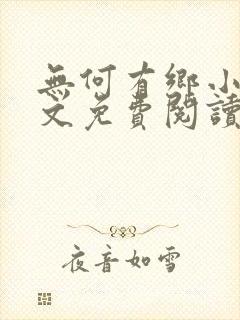 無何有鄉小
文免費閱讀
夜音如雪